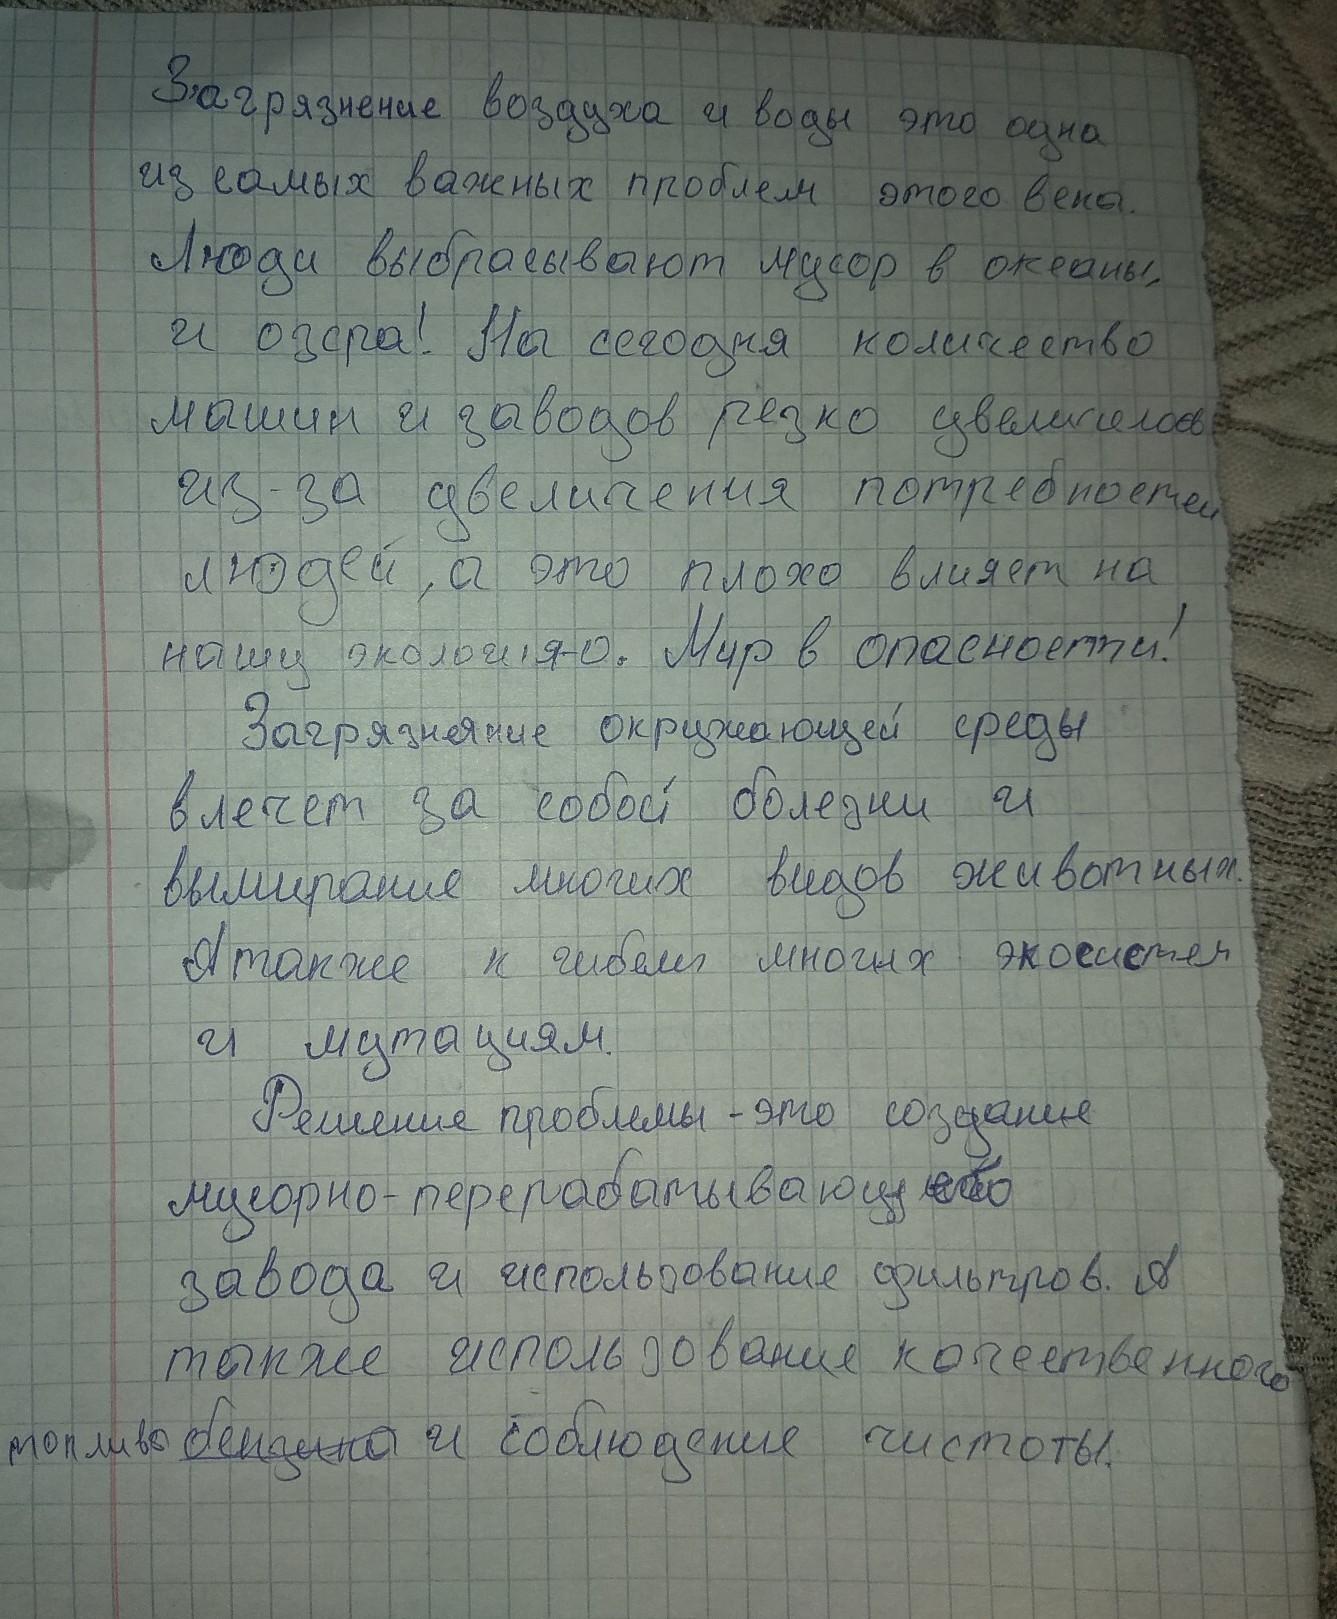 Загрязнение воздуха и воды это одна
из самых важных проблем этого века.
Люди выбрасывают мусор в океаны,
и озера! На сегодня количество
машин и заводов резко увеличелось
из-за увеличения потребностей
людей, а это плохо влияет на
нашу экологияю. Мир в опасности!
Загрязняние окружающей среды
влечет за собой болезни и
вымирание многих видов животных.
А также к гибели многих экосистем
и мутациям.
Решение проблемы - это создание
мусорно-перерабатывающего
завода и использование фильтров. А
также использование качественного
топливо бензина и соблюдение чистоты.